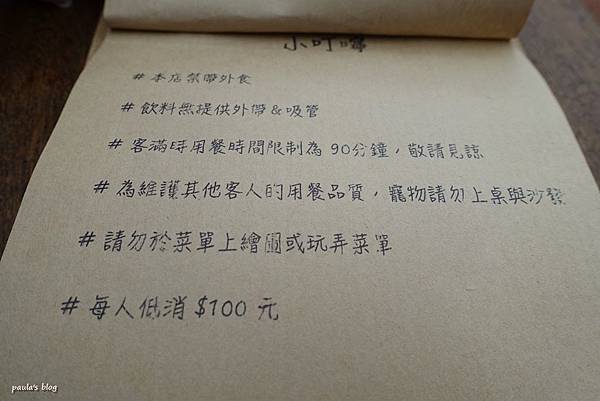 小叮嚀
# 本店禁帶外食
# 飲料無提供外帶 & 吸管
# 客滿時用餐時間限制為 90分鐘，敬請見諒
# 為維護其他客人的用餐品質，寵物請勿上桌與沙發
# 請勿於菜單上繪圖或玩弄菜單
# 每人低消 $100 元
paula's blog